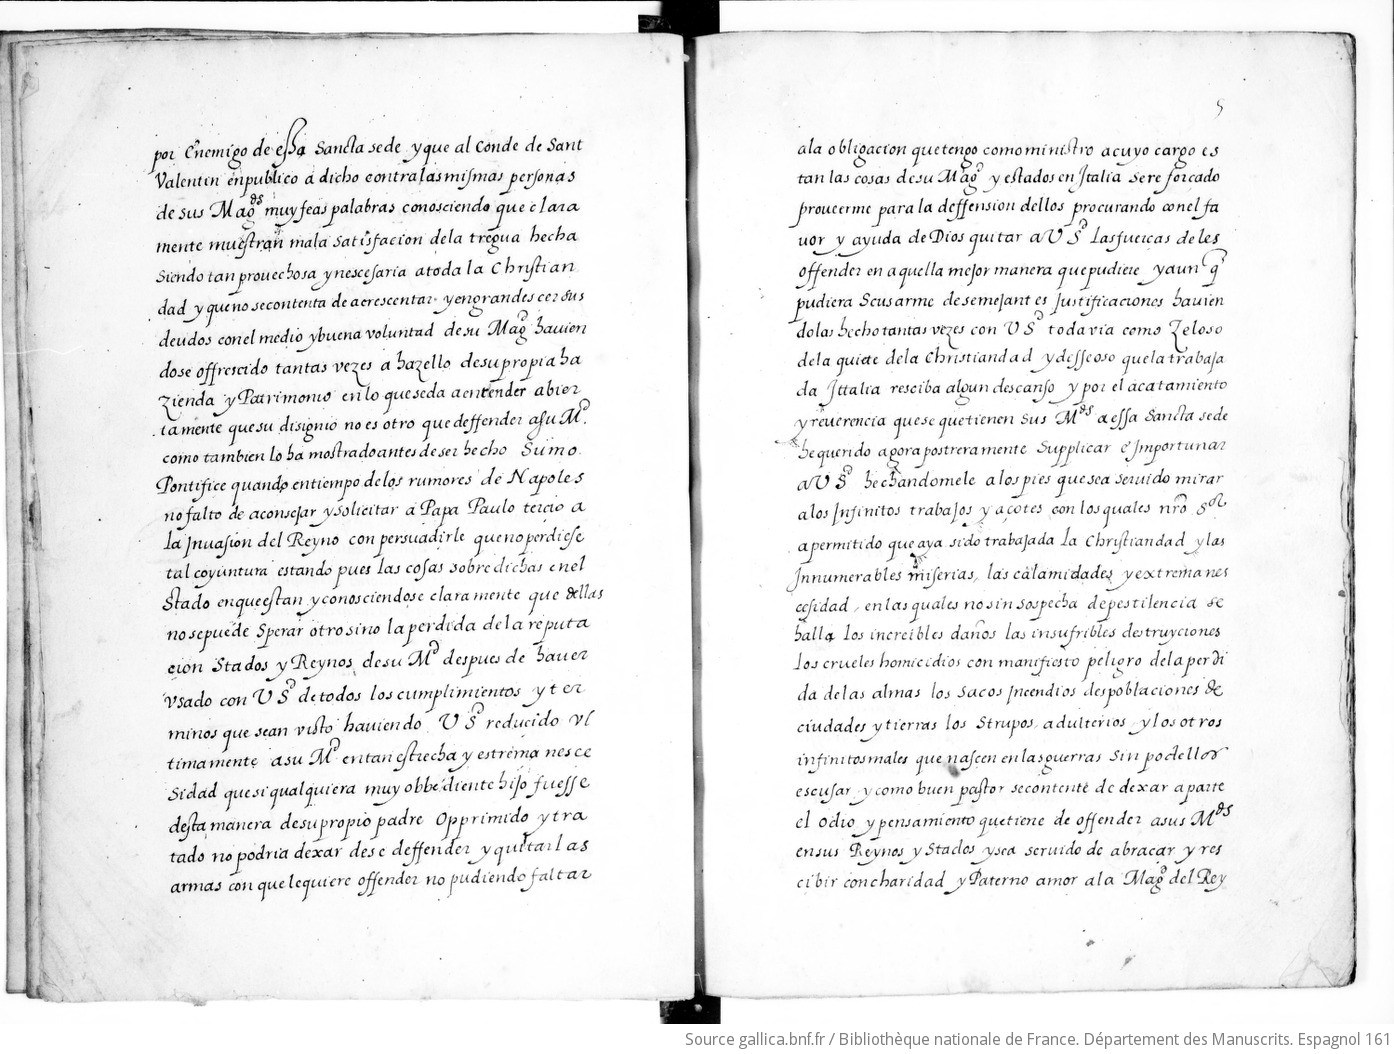 por Enemigo de essa Sancta sede y que al Conde de Sant
Valentin en publico a dicho contra las mismas personas
de sus Mag.des muy feas palabras conosciendo que clara
mente muestran mala satisfacion de la tregua hecha
siendo tan prouechosa y nescesaria a toda la Christian
dad y que no se contenta de acrescentar y engrandescer sus
deudos con el medio y buena voluntad de su Mag.d hauien
dose offrescido tantas vezes a hazello de su propia ha
zienda y Patrimonio en lo que se da a entender abier
tamente que su disignio no es otro que deffender a su M.d
como tambien lo ha mostrado antes de ser hecho Sumo
Pontifice quando en tiempo de los rumores de Napoles
no falto de aconsejar y solicitar a Papa Paulo tercio a
la Inuasion del Reyno con persuadirle que no perdiese
tal coyuntura estando pues las cosas sobre dichas en el
Stado en que estan y conosciendose claramente que dellas
no se puede Sperar otro sino la perdida de la reputa
cion Stados y Reynos de su M.d despues de hauer
vsado con V S.d de todos los cumplimientos y ter
minos que sean visto hauiendo V S.d reducido vl
timamente a su M.d en tan estrecha y estrema nesce
sidad que si qualquiera muy obbediente hijo fuesse
desta manera de su propio padre Opprimido y tra
tado no podria dexar de se deffender y quitar las
armas con que le quiere offender no pudiendo faltar
5
a la obligacion que tengo como ministro a cuyo cargo es
tan las cosas de su Mag.d y estados en Italia sere forcado
proueerme para la deffension dellos procurando con el fa
uor y ayuda de Dios quitar a V S.d las fuercas de les
offender en aquella mejor manera que pudiere y aun q
pudiera Scusarme de semejantes Justificaciones hauien
dolas hecho tantas vezes con V S.d todavia como Zeloso
de la quiete de la Christiandad y desseoso que la trabaja
da Ittalia resciba algun descanso y por el acatamiento
y reuerencia que se que tienen Sus M.des a essa Sancta sede
he querido agora postreramente Supplicar e Importunar
a V S.d hechandomele a los pies que sea seruido mirar
a los Infinitos trabajos y açotes con los quales nro S.or
a permitido que aya sido trabajada la Christiandad y las
Innumerables miserias, las calamidades y extrema nes
cesidad, en las quales no sin sospecha de pestilencia se
halla los increibles daños las insufribles destruyciones
los crueles homicidios con manifiesto peligro de la perdi
da de las almas los sacos Incendios despoblaciones de
ciudades y tierras los Strupos, adulterios y los otros
infinitos males que nascen en las guerras Sin podellos
escusar y como buen pastor se contente de dexar aparte
el odio y pensamiento que tiene de offender a sus M.des
en sus Reynos y Stados y sea seruido de abracar y res
cibir con charidad y Paterno amor a la Mag.d del Rey
Source gallica.bnf.fr / Bibliothèque nationale de France. Département des Manuscrits. Espagnol 161